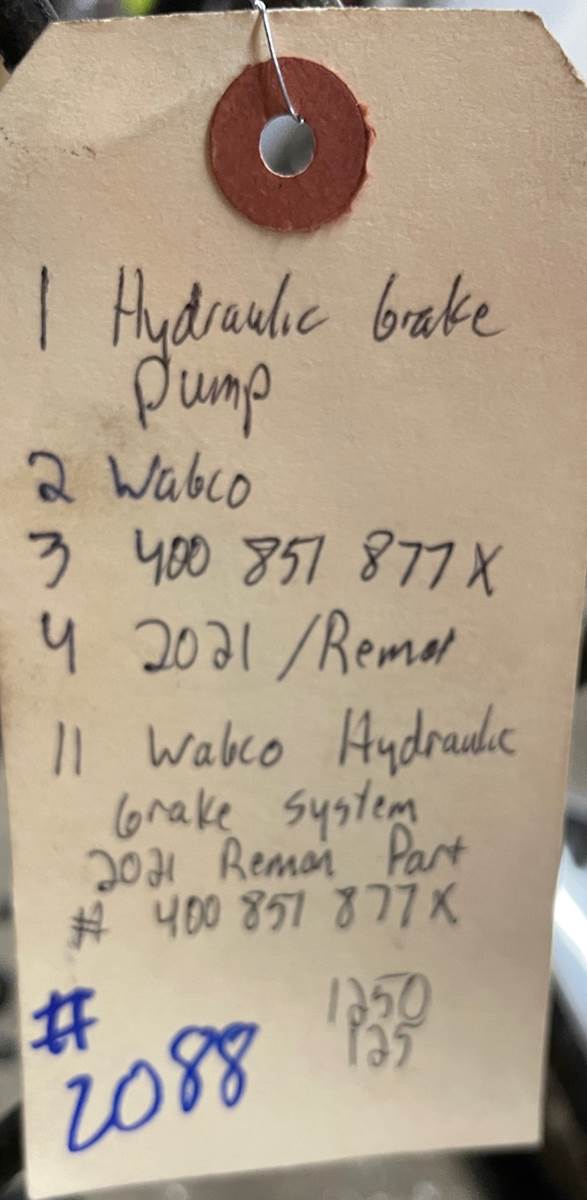 1 Hydraulic brake
pump
2 Wabco
3 400 851 877 X
4 2021 / Reman
11 Wabco Hydraulic
brake system
2021 Reman Part
# 400 851 877 X
1250
125
#
2088